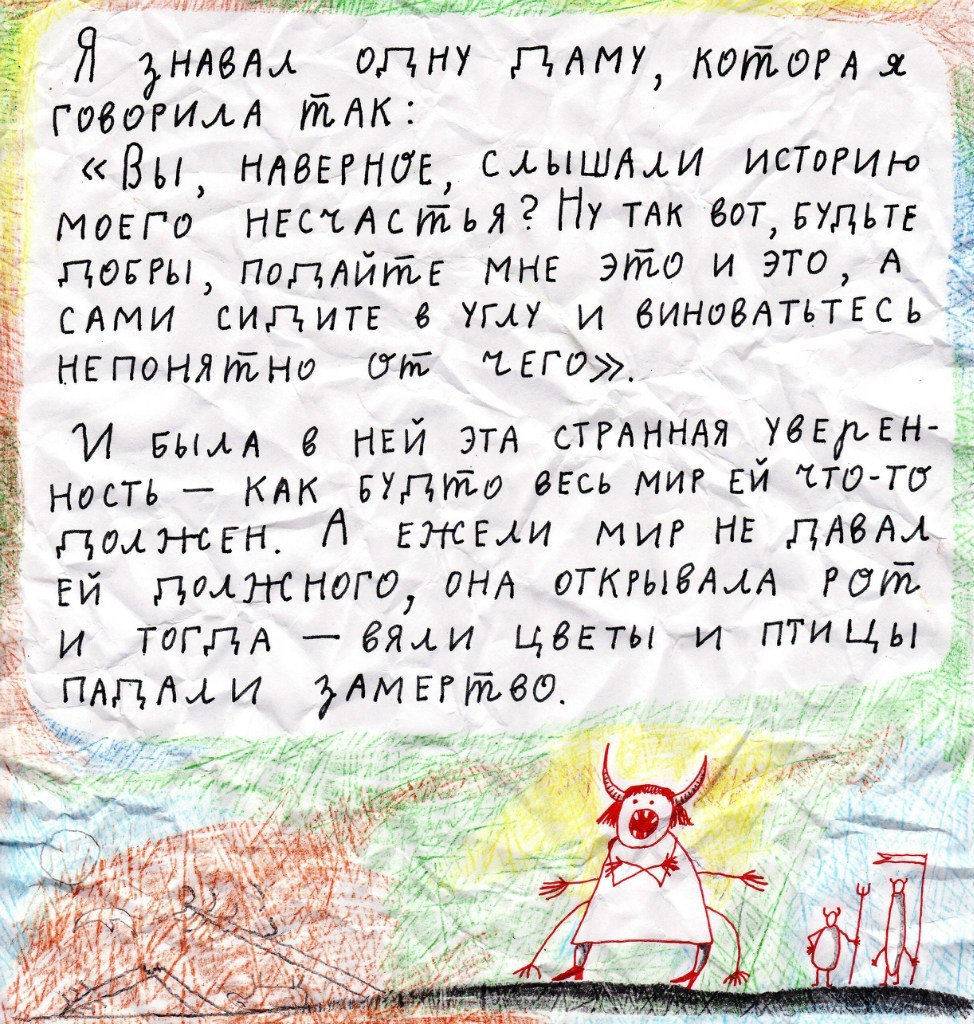 Я знавал одну даму, которая
говорила так:
«Вы, наверное, слышали историю
моего несчастья? Ну так вот, будьте
добры, подайте мне это и это, а
сами сидите в углу и виноватьтесь
непонятно от чего».
И была в ней эта странная уверен-
ность — как будто весь мир ей что-то
должен. А ежели мир не давал
ей должного, она открывала рот
и тогда — вяли цветы и птицы
падали замертво.